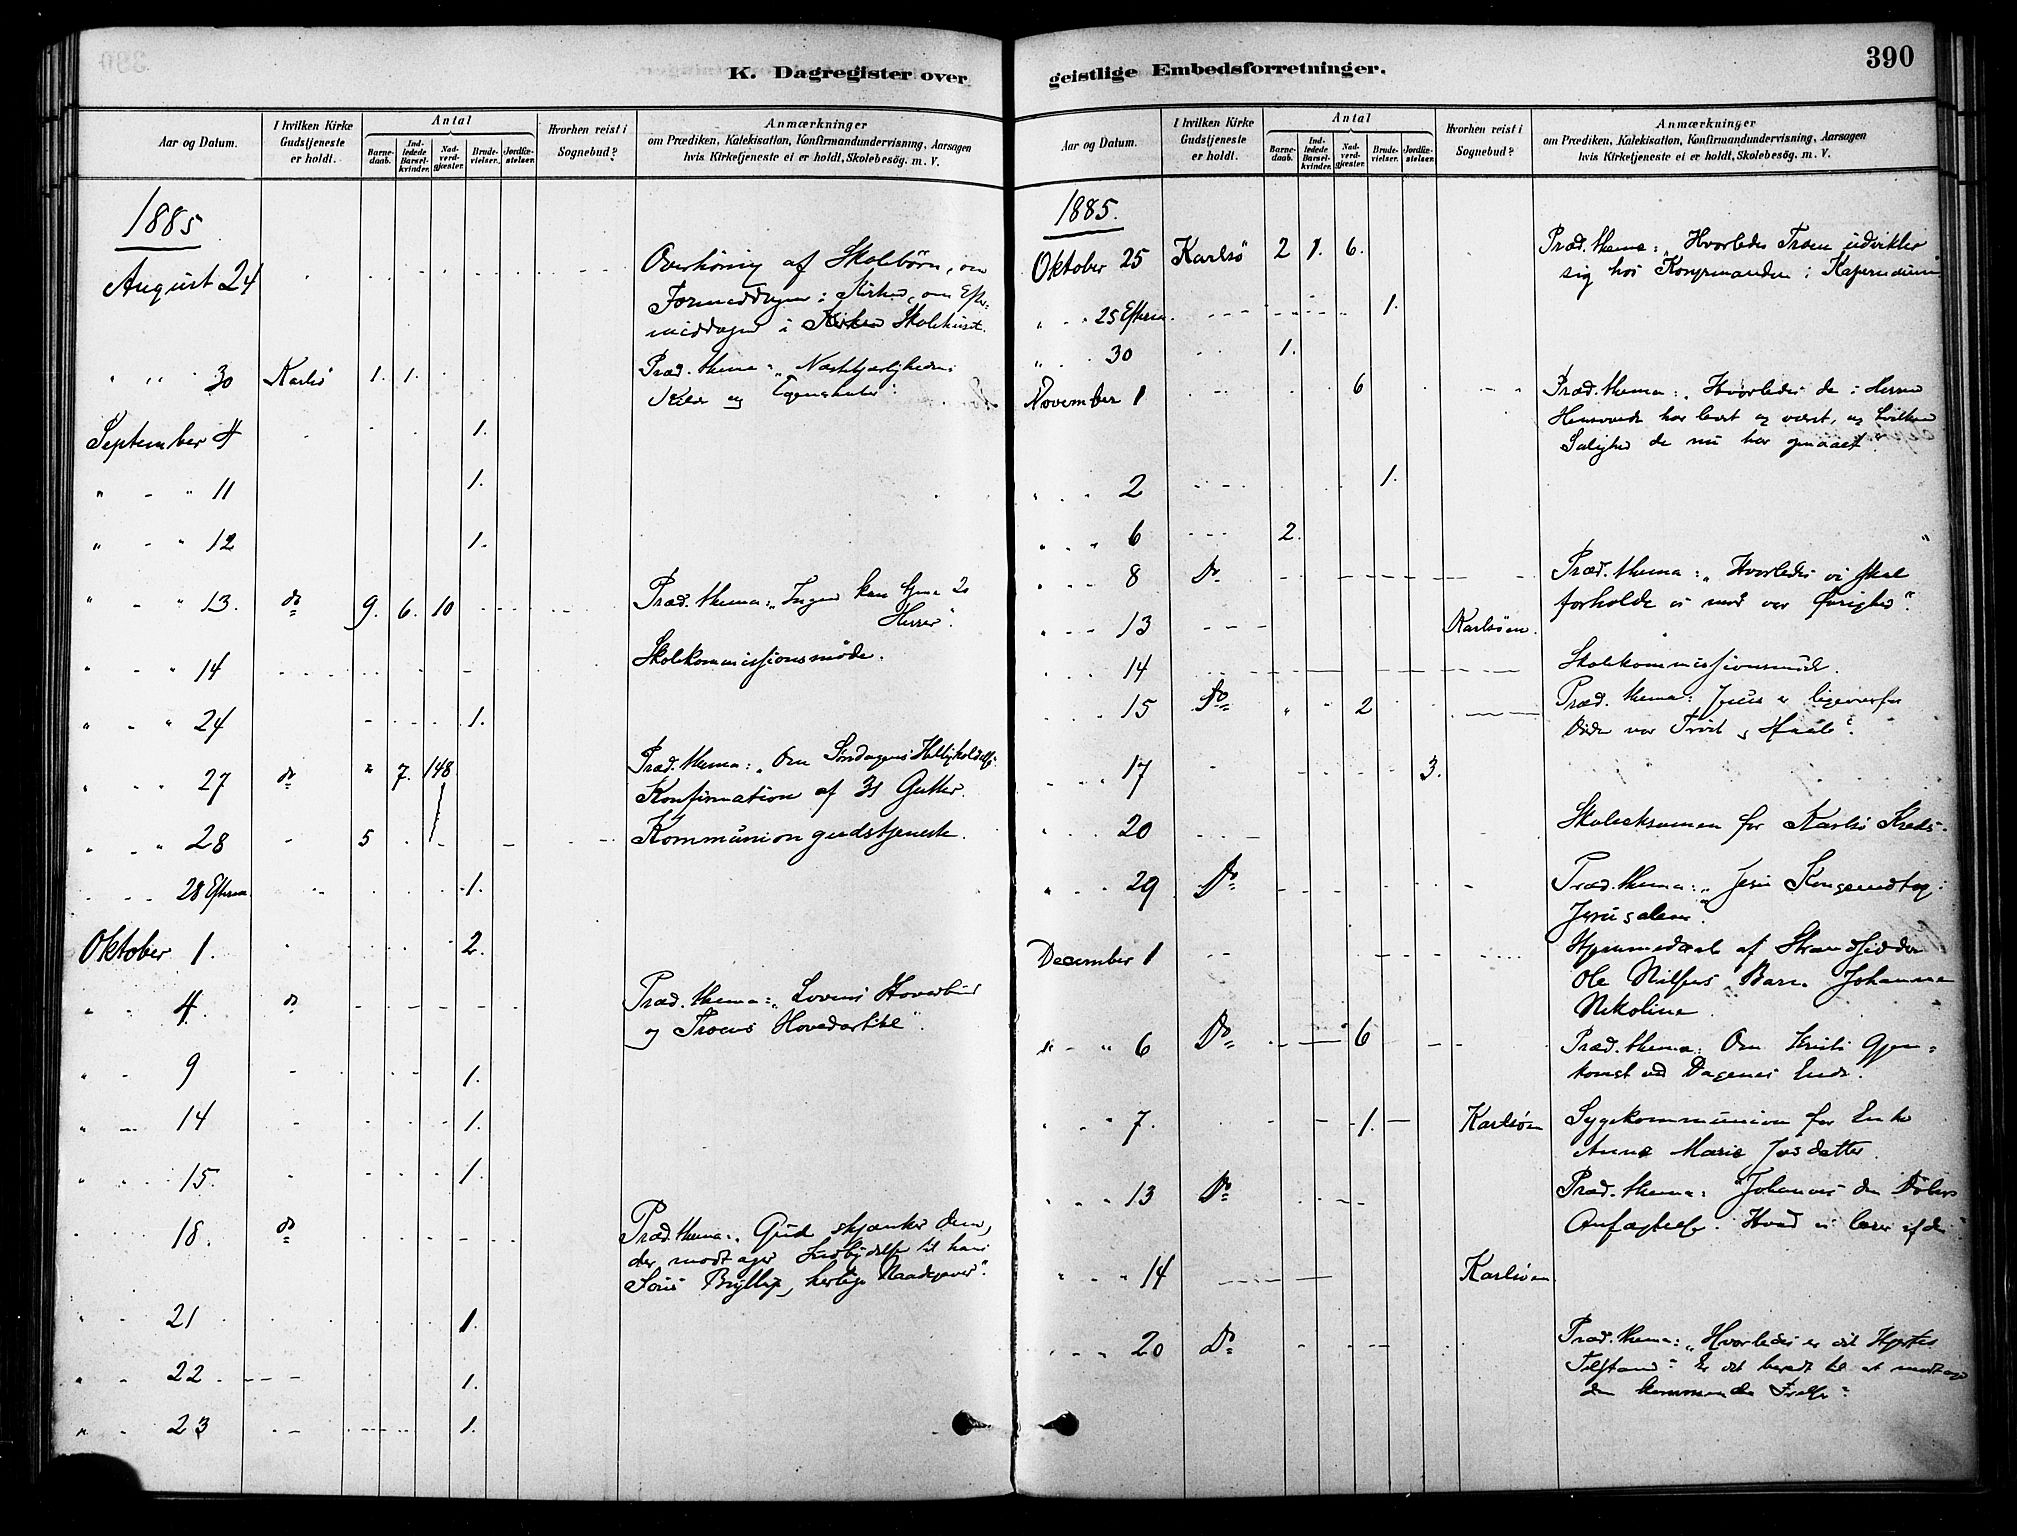 K. Dagregister over
Aar og Datum.
I hvilken Kirke Gudstjeneste er holdt.
Antal
Barnedaab.
Indledede Barselkvinder.
Nadverdgjæster.
Brudevielser.
Jordfæstelser.
Hvorhen reist i Sognebud?
Anmærkninger
om Prædiken, Katekisation, Konfirmandundervisning, Aarsagen
hvis Kirketjeneste ei er holdt, Skolebesög, m. V.
1885
August 24 Overhøring af Skolebørn, om
Formiddagen i Kirken, om Efter-
middagen i Kirken Skolehuset.
" " 30 Karlsø 1. 1. Præd. thema: „Næstkjærlighedens
Kilde og Egenskaber".
September 4 1.
" - " 11 1.
" - " 12 1.
" - " 13. do 9. 6. 10 Præd. thema: „Ingen kan tjene 2
Herrer".
" " 14 Skolekommissionsmøde.
" - " 24 1.
" - " 27 do " 7. 148 Præd. thema: „Om Søndagens Helligholdelse.
Konfirmation af 31 Gutter.
" - " 28 5 Kommuniongudstjeneste.
28 Efterm 1.
Oktober 1. 2.
" " 4. do Præd. thema: „Lovens Hovedbud
og Troens Hovedartikel".
" - 9 1.
" - 14 1.
" 15. 1.
" 18. do Præd. thema: „Gud skjænker dem,
der modtager Indbydelse til hans
Søns Bryllup, herlige Naadegaver".
" 21 1.
" " 22 1.
" " 23 1.
390
geistlige Embedsforretninger.
Aar og Datum.
I hvilken Kirke Gudstjeneste er holdt.
Antal
Barnedaab.
Indledede Barselkvinder.
Nadverdgjæster.
Brudevielser.
Jordfæstelser.
Hvorhen reist i Sognebud?
Anmærkninger
om Prædiken, Katekisation, Konfirmandundervisning, Aarsagen
hvis Kirketjeneste ei er holdt, Skolebesög, m. V.
1885.
Oktober 25 Karlsø 2 1. 6. Præd. thema: „Hvorledes Troen udvikler
sig hos Kongsmanden i Kapernaum
" - 25 Efterm. 1.
" 30 1.
November 1 6 Præd. thema: „Hvorledes de i Herren
Hensovede har levet og været, og hvilken
Salighed de nu har opnaaet".
" - 2 1.
" - " 6 2.
" - - 8 Do Præd. thema: „Hvorledes vi skal
forholde os mod vor Øvrighed".
" - - 13 Karlsøen.
14 Skolekommissionsmøde.
" 15 Do " " 2 Præd. thema: Jesus er ligeoverfor
Døden vor Trøst og Haab".
17 3.
" 20 Skoleeksamen for Karlsø Kreds.
" - - 29 Do Præd. thema: „Jesu Kongeindtog i
Jerusalem".
December 1 Hjemmedaab af Strandsidder
Ole Nilsens Barn Johanna
Nikoline.
" - " 6 Do 6 Præd. thema: Om Kristi Gjen-
komst ved Dagenes Ende.
" " 7. 1. Karlsøen Sygekommunion for Enke
Anne Marie Jo[...]datter.
" " 13 Do Præd. thema: „Johannes den Døbers
Anfægtelse. Hvad vi lærer af den
" " 14 Karlsøen
20 Do Præd. thema: „Hvorledes er dit Hjertes
Tilstand? Er det beredt til at modtage
den kommende Frelser?